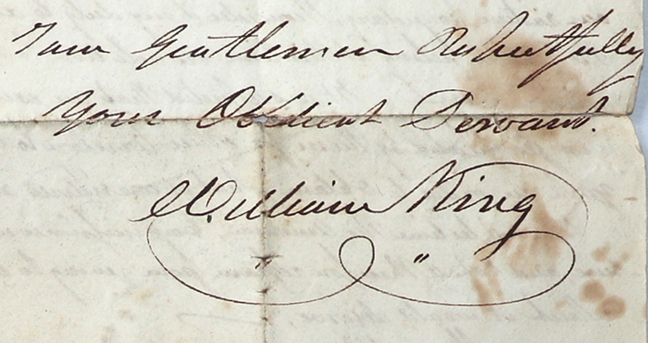 I am Gentlemen Respectfully
Your Obedient Servant.
William King